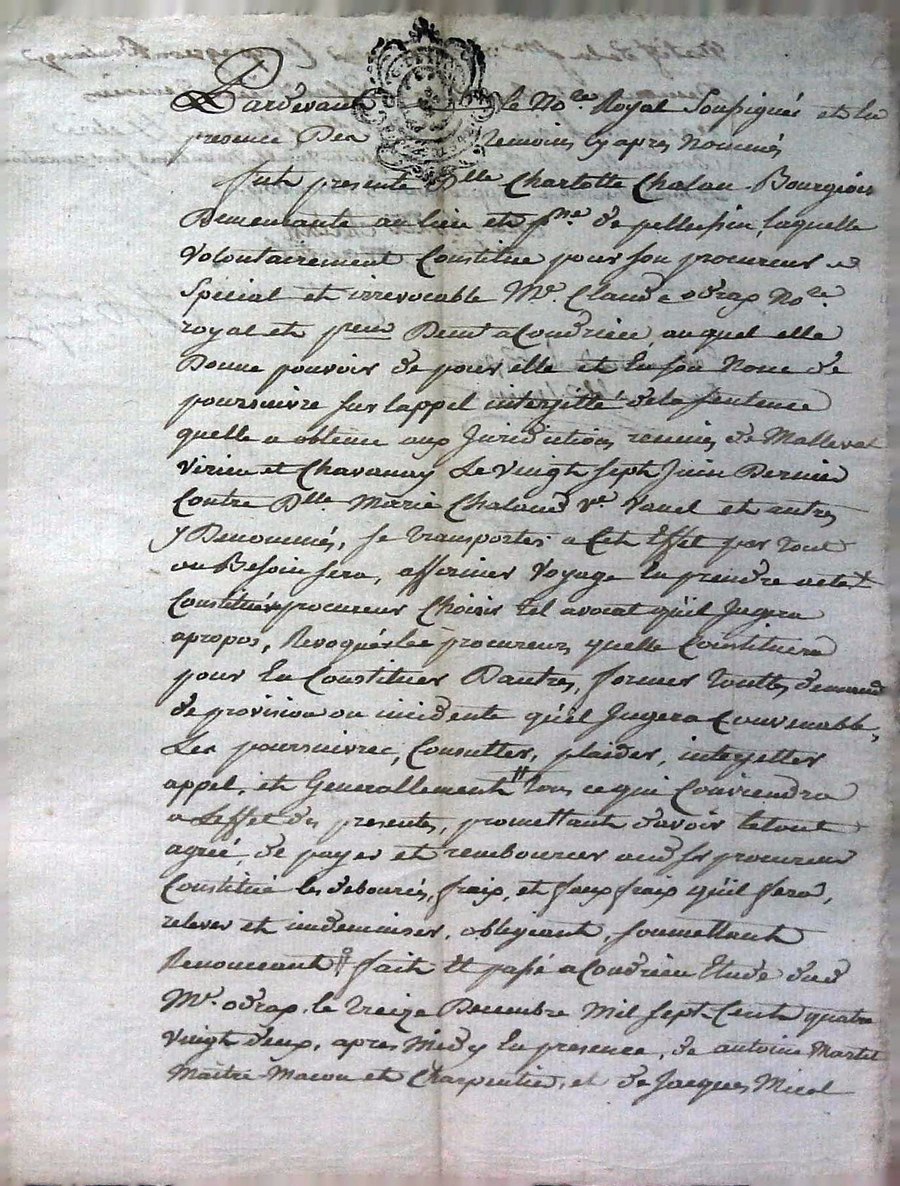 Pardevant le No.re Royal Soussigné et en
presence Des temoins cy apres Nommés
fut presente D.lle Charlotte Chalan Bourgeoise
Demeurante au lieu et p.sse de pellussin, laquelle
Volontairement Constitue pour son procureur
Special et irrevocable M.e Claude odrap No.re
royal et Dem.t a Condrieu, auquel elle
Donne pouvoir de pour elle et En son Nom de
poursuivre sur lappel interjetté de la sentence
quelle a obtenu aux Juridictions reunies de Malleval
Virieu et Chavanay Le vingt sept Juin Dernier
Contre D.lle Marie Chaland v.e et autres
y Denommés, se transporter a Cet Effet par tout
ou Besoin sera, affirmer Voyage En prendre acte
Constituer procureur Choisir tel avocat qu'il Jugera
apropos, Revoquer les procureurs quelle Constituera
pour En Constituer Dautres, former touttes demand
de provision ou incidente qu'il Jugera Convenable,
Les poursuivre, Consulter, plaider, interjetter
appel, et Generallement tous ce qui Conviendra
a Leffet des presentes, promettant d'avoir letout
agréé, de payer et rembourcer aud. sr procureur
Constitué les debourcés, fraix, et faux fraix qu'il fera,
relever et indemniser, obligeant, soumettant
Renonceant fait Et passé a Condrieu Etude dud
M.e odrap, le treize Decembre Mil sept-Cent quatre
vingt deux, apres Midy En presence, de antoine Martel
Maitre Macon et Charpentier, et de Jacques Micol